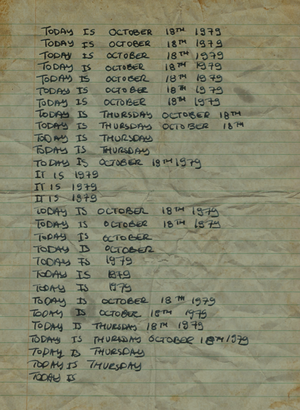 TODAY IS OCTOBER 18TH 1979
TODAY IS OCTOBER 18TH 1979
TODAY IS OCTOBER 18TH 1979
TODAY IS OCTOBER 18TH 1979
TODAY IS OCTOBER 18TH 1979
TODAY IS OCTOBER 18TH 1979
TODAY IS OCTOBER 18TH 1979
TODAY IS THURSDAY OCTOBER 18TH
TODAY IS THURSDAY OCTOBER 18TH
TODAY IS THURSDAY
TODAY IS THURSDAY
TODAY IS OCTOBER 18TH 1979
IT IS 1979
IT IS 1979
IT IS 1979
TODAY IS OCTOBER 18TH 1979
TODAY IS OCTOBER 18TH 1979
TODAY IS OCTOBER
TODAY IS OCTOBER
TODAY IS 1979
TODAY IS 1979
TODAY IS 1979
TODAY IS OCTOBER 18TH 1979
TODAY IS OCTOBER 18TH 1979
TODAY IS THURSDAY 18TH 1979
TODAY IS THURSDAY OCTOBER 18TH 1979
TODAY IS THURSDAY
TODAY IS THURSDAY
TODAY IS